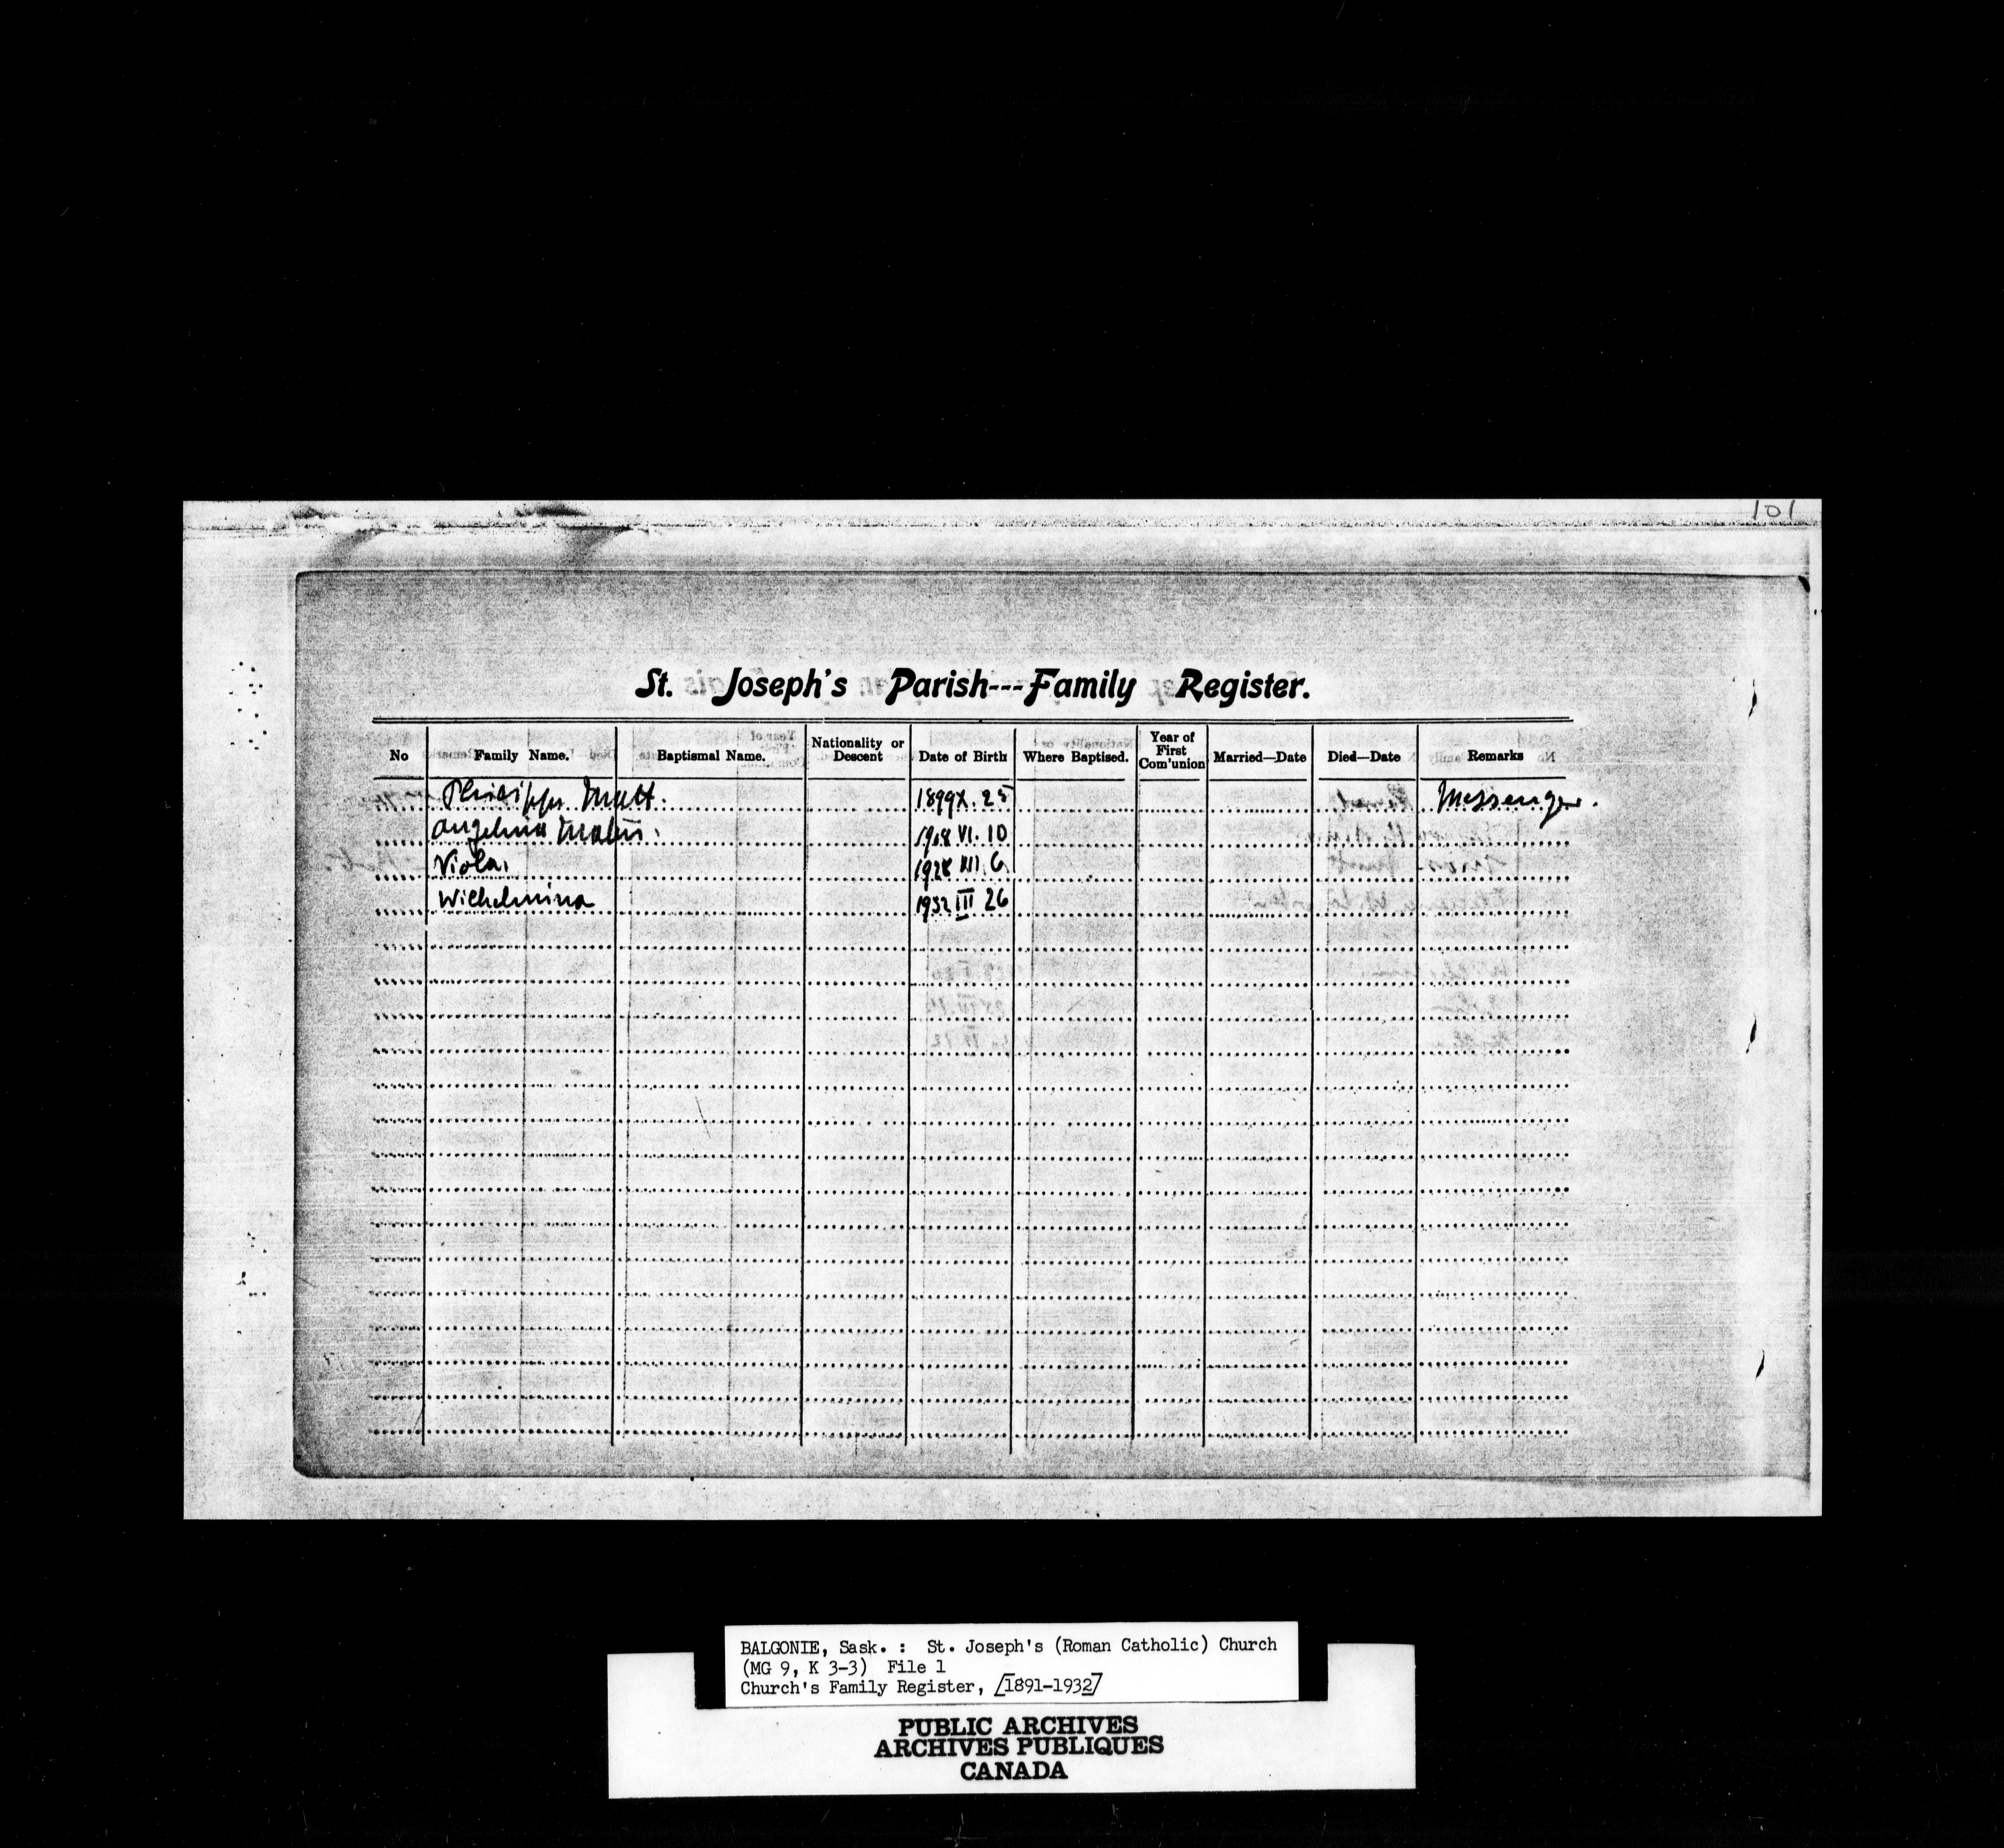 101
St. Joseph's Parish---Family Register.
No Family Name. Baptismal Name. Nationality or Descent Date of Birth Where Baptised. Year of First Com'union Married—Date Died—Date Remarks
Philipp Matt. 1899 X. 25 Messenger.
Angelina 1908 VI. 10
Viola. 1928 XII. 6
Wilhelmina 1932 III 26
BALGONIE, Sask. : St. Joseph's (Roman Catholic) Church
(MG 9, K 3-3) File 1
Church's Family Register, [1891-1932]
PUBLIC ARCHIVES
ARCHIVES PUBLIQUES
CANADA